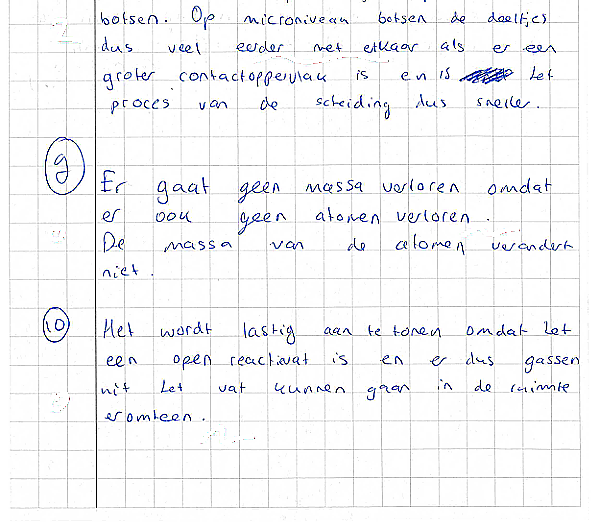 botsen. Op microniveau botsen de deeltjes
dus veel eerder met elkaar als er een
groter contactoppervlak is en is het
proces van de scheiding dus sneller.
9 Er gaat geen massa verloren omdat
er ook geen atomen verloren.
De massa van de atomen verandert
niet.
10 Het wordt lastig aan te tonen omdat het
een open reactievat is en er dus gassen
uit het vat kunnen gaan in de ruimte
eromheen.